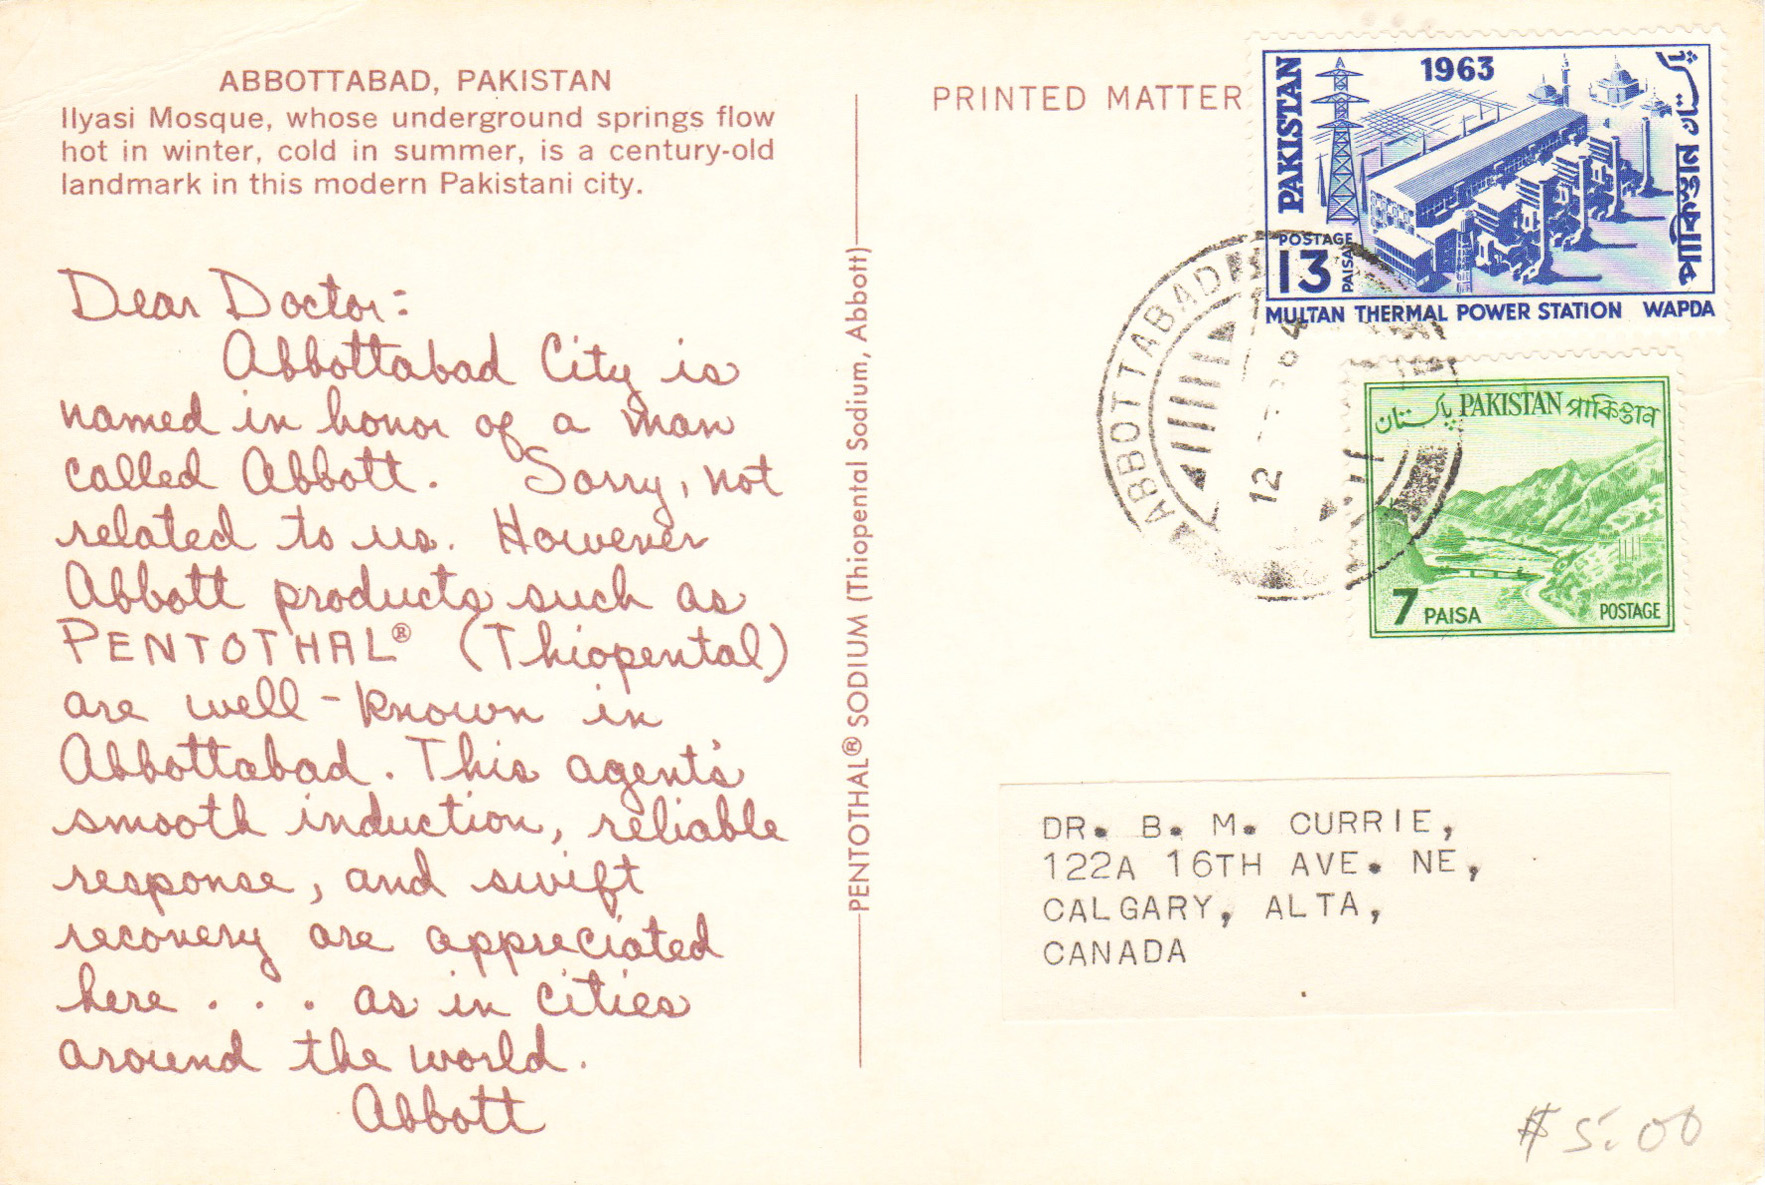 ABBOTTABAD, PAKISTAN
Ilyasi Mosque, whose underground springs flow
hot in winter, cold in summer, is a century-old
landmark in this modern Pakistani city.
Dear Doctor:
Abbottabad City is
named in honor of a man
called Abbott. Sorry, not
related to us. However
Abbott products such as
PENTOTHAL® (Thiopental)
are well-known in
Abbottabad. This agent's
smooth induction, reliable
response, and swift
recovery are appreciated
here . . . as in cities
around the world.
Abbott
PENTOTHAL® SODIUM (Thiopental Sodium, Abbott)
PRINTED MATTER
PAKISTAN
1963
পাকিস্তান
POSTAGE
13 PAISA
MULTAN THERMAL POWER STATION WAPDA
ABBOTTABAD
12
پاکستان PAKISTAN পাকিস্তান
7 PAISA POSTAGE
DR. B. M. CURRIE,
122A 16TH AVE. NE,
CALGARY, ALTA,
CANADA
$5.00